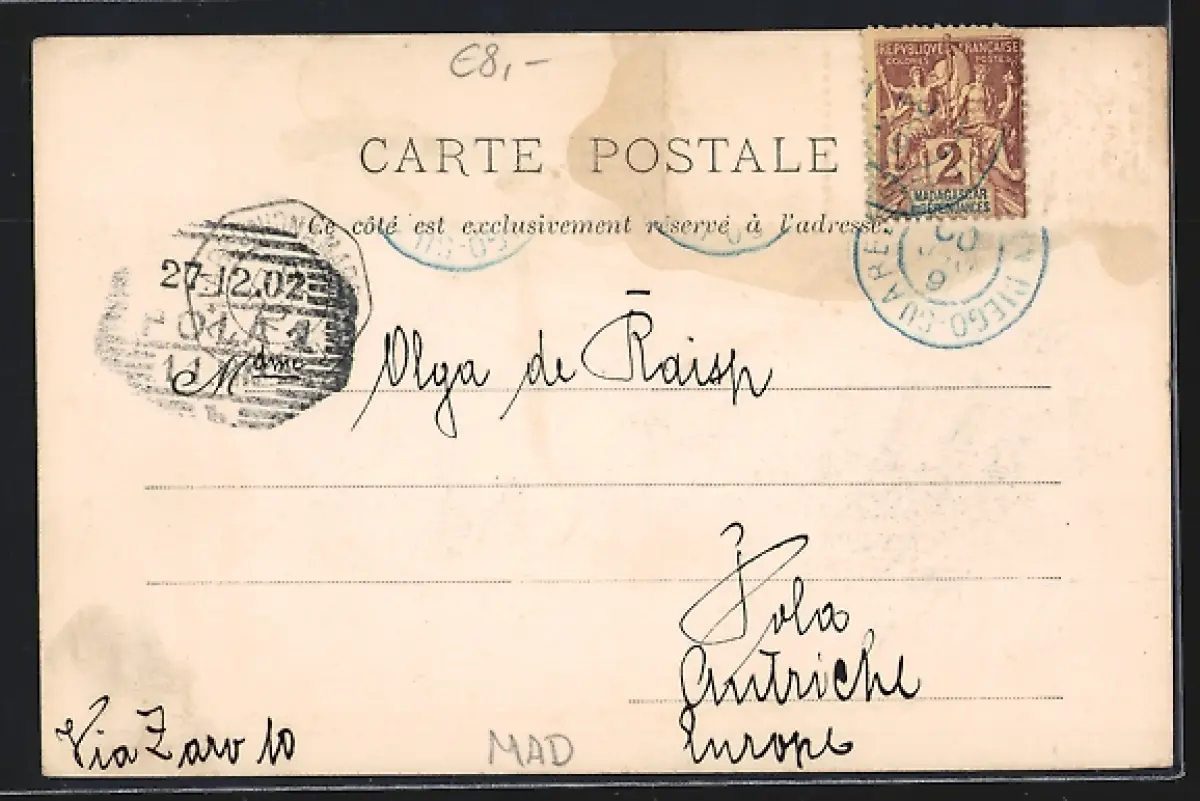 €8,-
REPVBLIQUE FRANÇAISE
COLONIES POSTES
2
MADAGASCAR
CARTE POSTALE
Ce côté est exclusivement réservé à l'adresse.
27.12.02
POLA 1
11
DIEGO-SUAREZ
Mdme Olga de Raisp
Pola
Autriche
Europe
Via Zaro 10
MAD